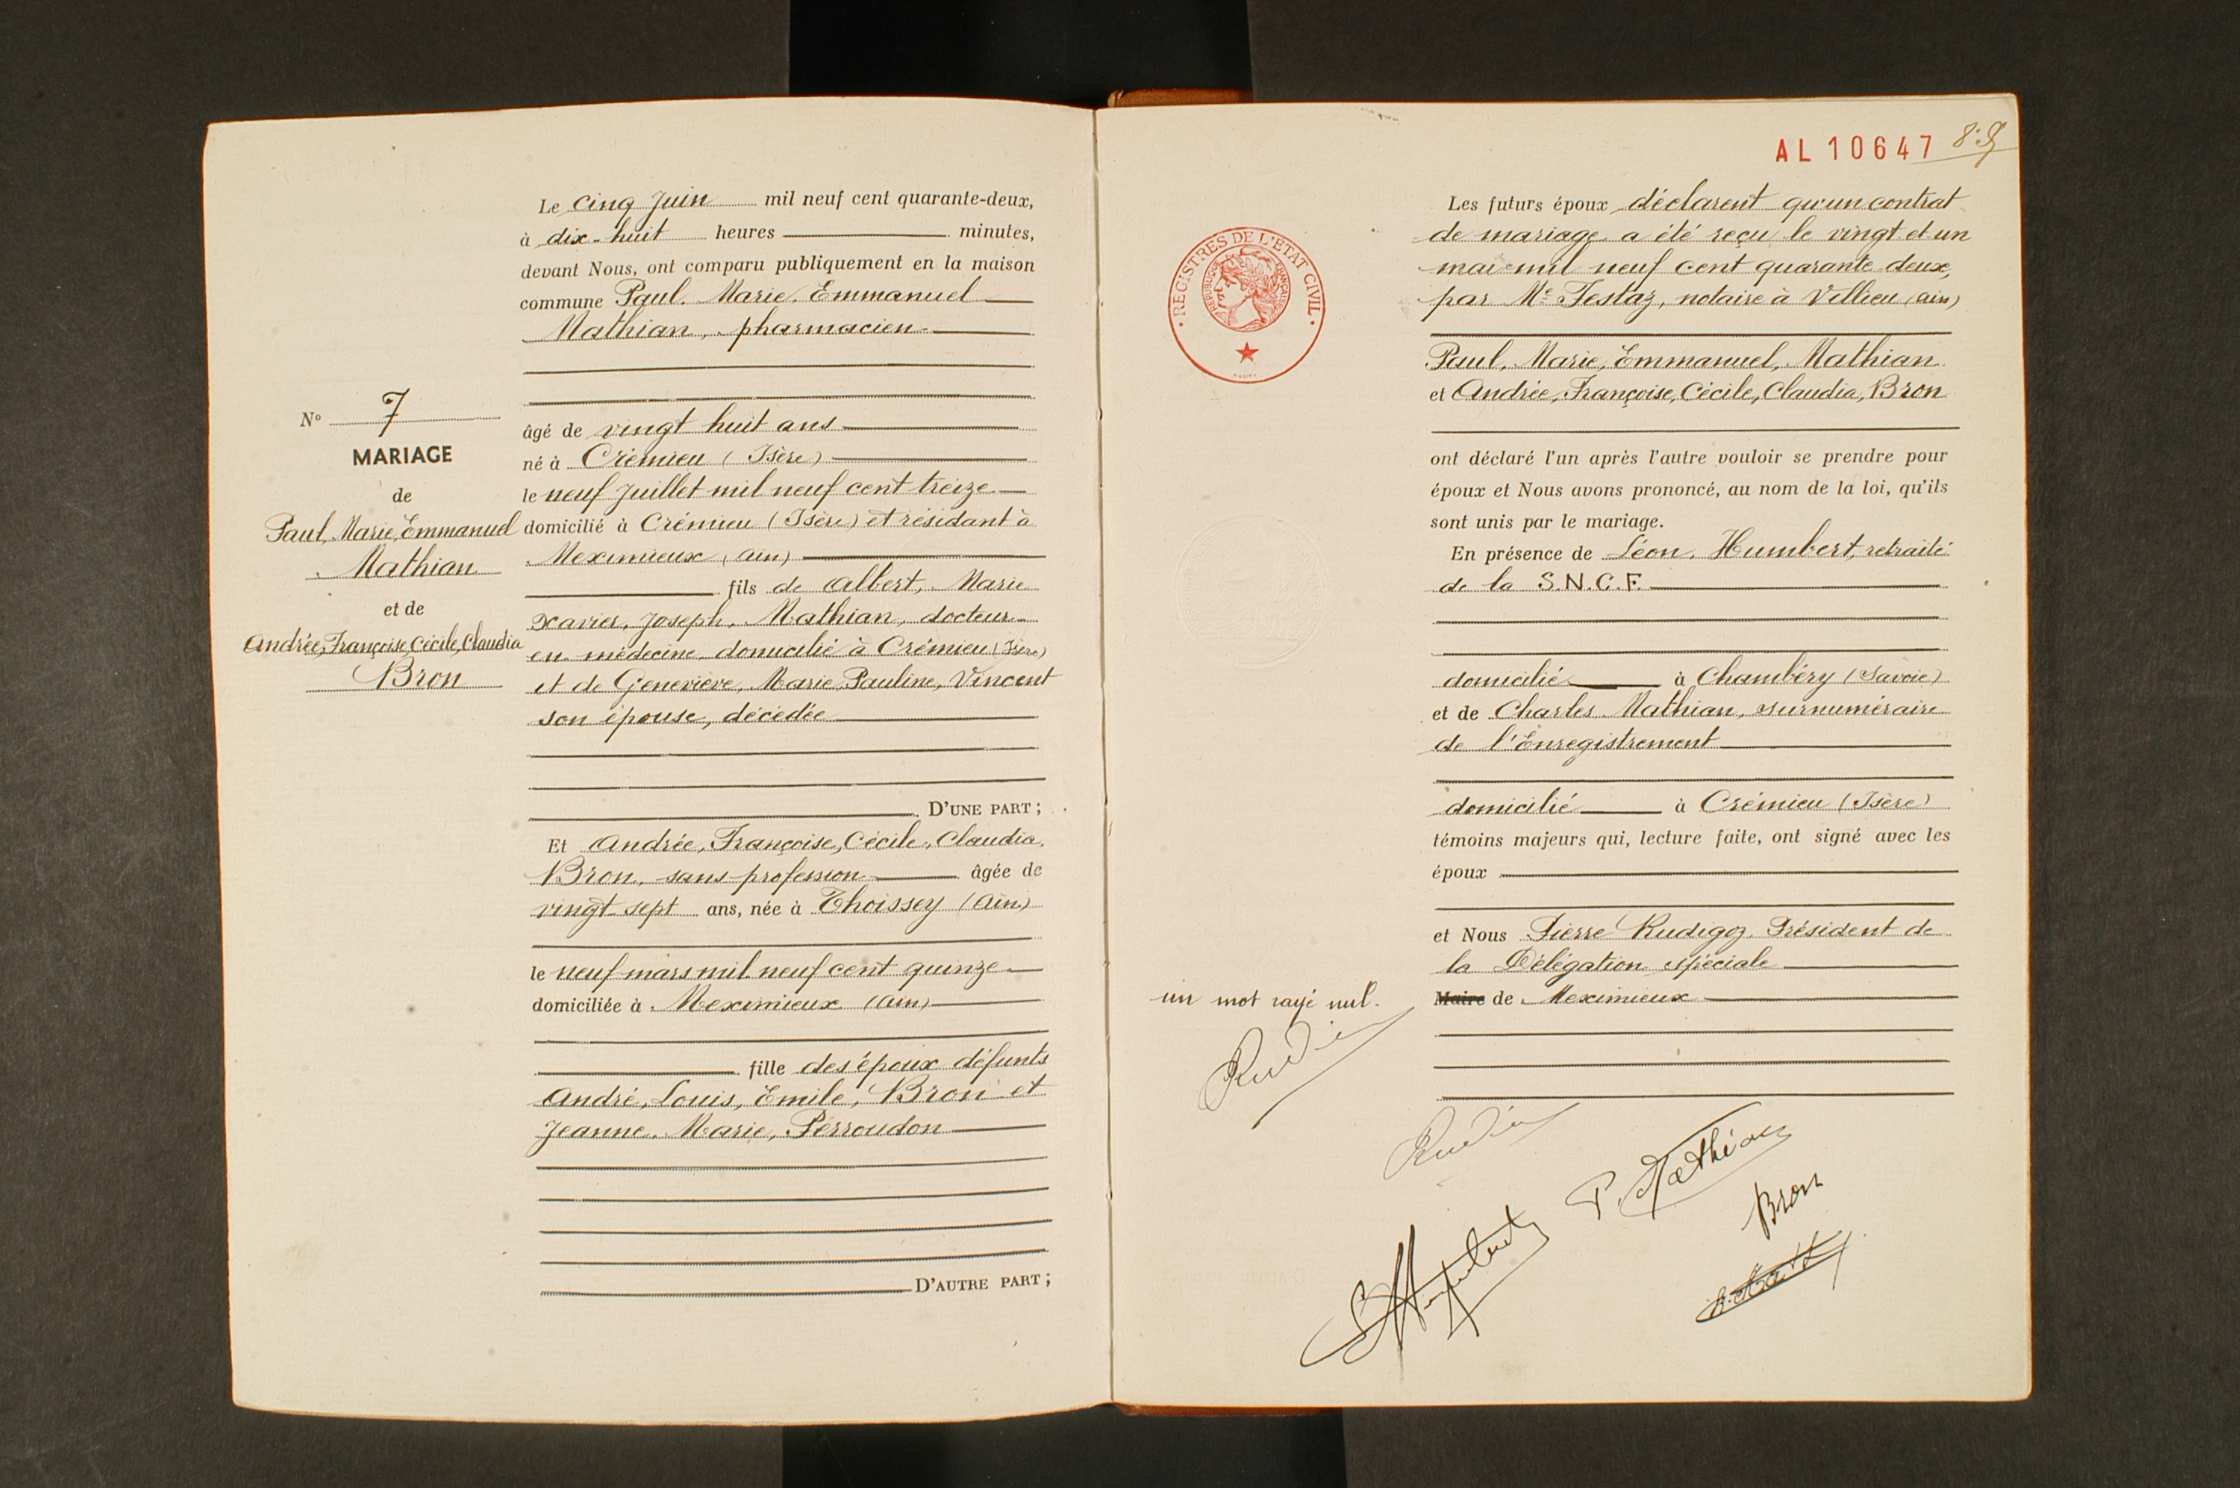 Le cinq Juin mil neuf cent quarante-deux,
à dix-huit heures minutes,
devant Nous, ont comparu publiquement en la maison
commune Paul, Marie, Emmanuel
Mathian, pharmacien
âgé de vingt huit ans
né à Crémieu (Isère)
le neuf Juillet mil neuf cent treize
domicilié à Crémieu (Isère) et résidant à
Meximieux (Ain)
fils de Albert, Marie
Xavier, Joseph, Mathian, docteur
en médecine domicilié à Crémieu (Isère)
et de Geneviève, Marie, Pauline, Vincent
son épouse, décédée
D'UNE PART;
Et Andrée, Françoise, Cécile, Claudia,
Bron, sans profession âgée de
vingt-sept ans, née à Thoissey (Ain)
le neuf mars mil neuf cent quinze
domiciliée à Meximieux (Ain)
fille des époux défunts
André, Louis, Emile, Bron et
Jeanne, Marie, Perroudon
D'AUTRE PART;
N° 7
MARIAGE
de
Paul, Marie, Emmanuel
Mathian
et de
Andrée, Françoise, Cécile, Claudia
Bron
AL 10647
REGISTRES DE L'ETAT CIVIL
REPUBLIQUE FRANÇAISE
Les futurs époux déclarent qu'un contrat
de mariage a été reçu le vingt et un
mai mil neuf cent quarante deux,
par Me Testaz, notaire à Villieu (Ain)
Paul, Marie, Emmanuel, Mathian
et Andrée, Françoise, Cécile, Claudia, Bron
ont déclaré l'un après l'autre vouloir se prendre pour
époux et Nous avons prononcé, au nom de la loi, qu'ils
sont unis par le mariage.
En présence de Léon, Humbert, retraité
de la S.N.C.F.
domicilié à Chambéry (Savoie)
et de Charles Mathian, surnuméraire
de l'Enregistrement
domicilié à Crémieu (Isère)
témoins majeurs qui, lecture faite, ont signé avec les
époux
et Nous Pierre Rudigoz, Président de
la Délégation spéciale
Maire de Meximieux
un mot rayé nul.
P. Mathian
Bron